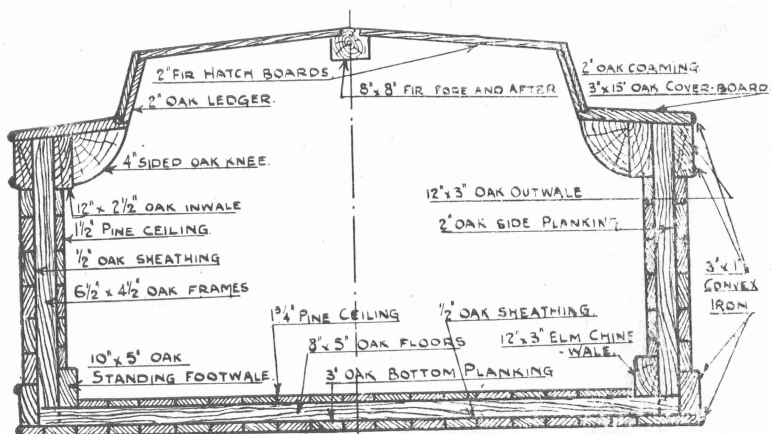 2" FIR HATCH BOARDS
2" OAK LEDGER.
8"x 8" FIR FORE AND AFTER
2" OAK COAMING.
3"x 15" OAK COVER-BOARD.
4" SIDED OAK KNEE.
12" x 2½" OAK INWALE
1½" PINE CEILING.
½" OAK SHEATHING
6½" x 4½" OAK FRAMES
12"x 3" OAK OUTWALE
2" OAK SIDE PLANKING
3"x 1"
CONVEX
IRON
1¾" PINE CEILING
½" OAK SHEATHING.
8"x 5" OAK FLOORS
12"x 3" ELM CHINE
-WALE.
10"x 5" OAK
STANDING FOOTWALE.
3" OAK BOTTOM PLANKING